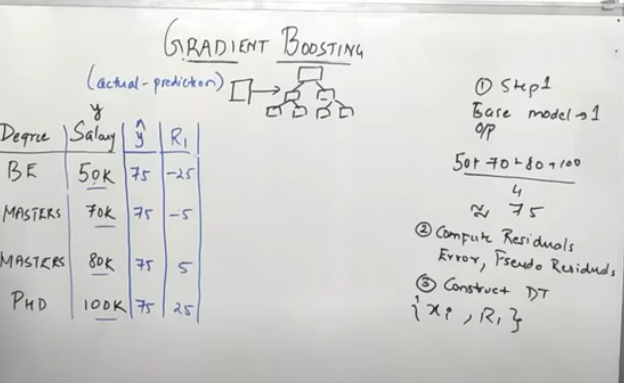 GRADIENT BOOSTING
(actual-prediction)
y
Degree Salary ŷ R1
BE 50K 75 -25
MASTERS 70K 75 -5
MASTERS 80K 75 5
PHD 100K 75 25
① Step 1
Base model → 1
O/P
50+70+80+100
4
≈ 75
② Compute Residuals
Error, Pseudo Residuals
③ Construct DT
{xi, R1}